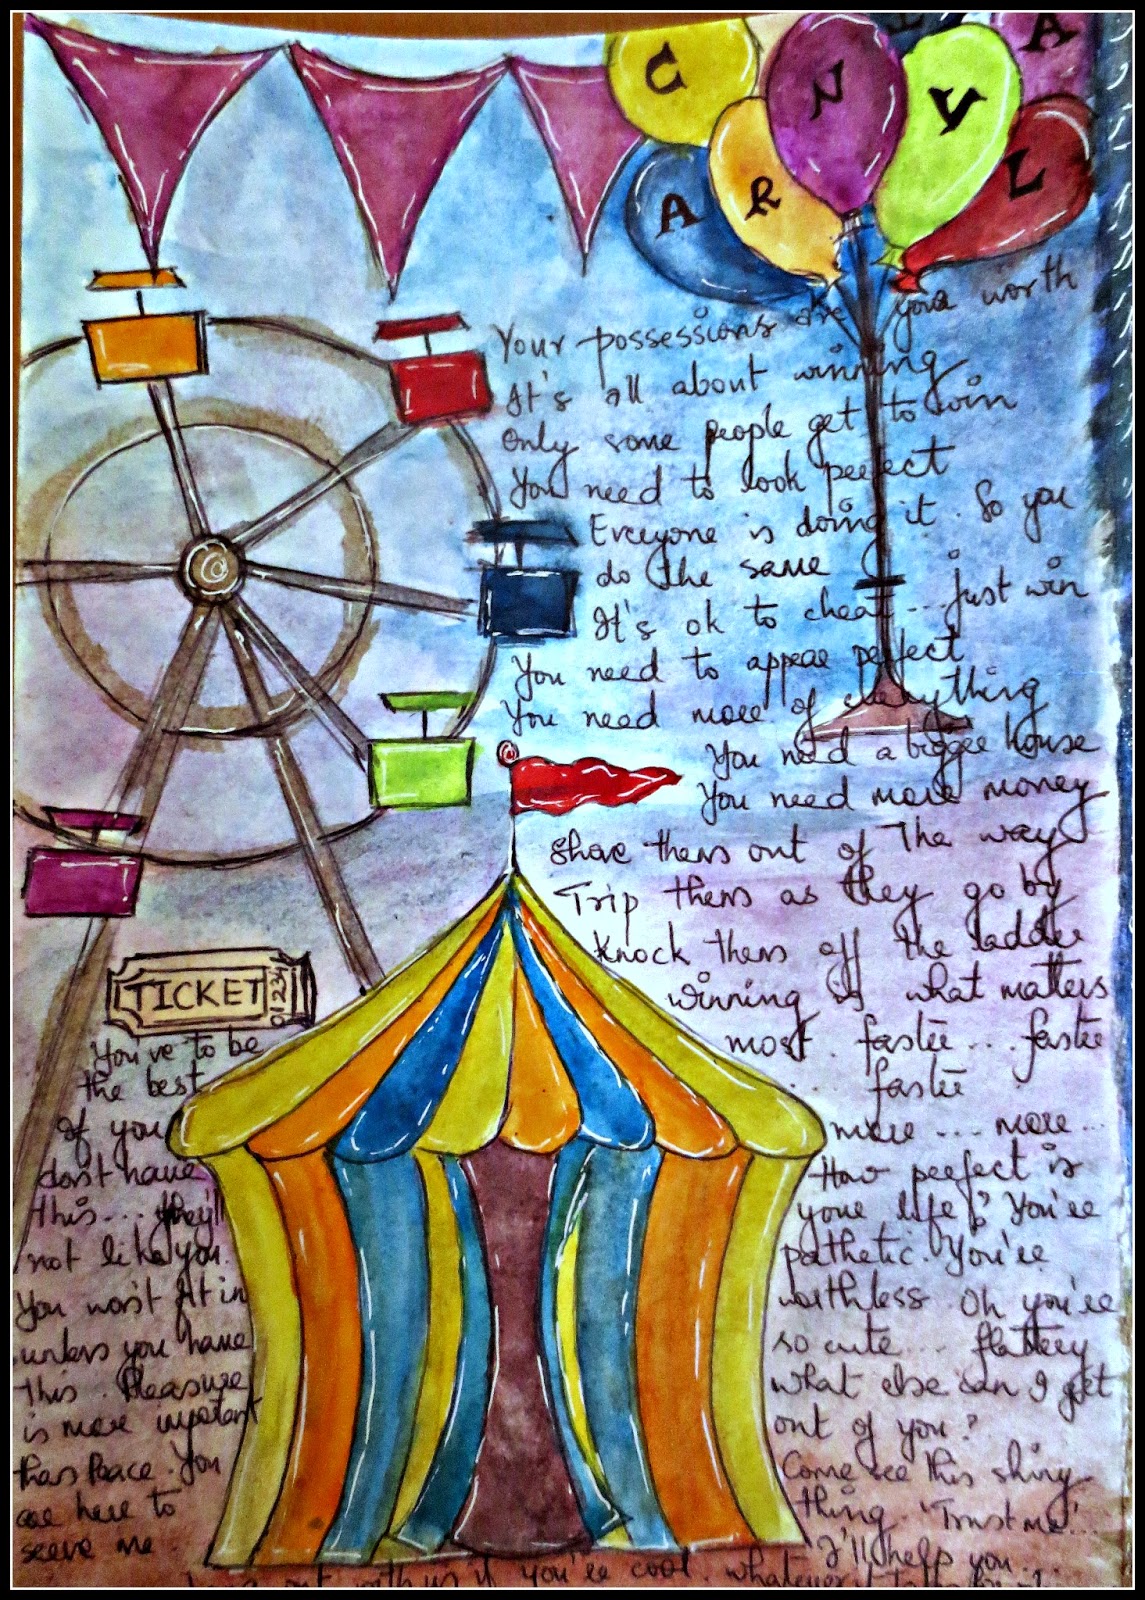 C A R N I V A L
Your possessions are your worth
It's all about winning
Only some people get to win
You need to look perfect
Everyone is doing it. So you
do the same
It's ok to cheat ... just win
You need to appear perfect
You need more of everything
You need a bigger house
You need more money
Shove them out of the way
Trip them as they go by
Knock them off the ladder
winning is what matters
most. faster ... faster
... faster
more ... more ...
How perfect is
your life? You're
pathetic. You're
worthless. Oh you're
so cute ... flattery
what else can I get
out of you?
Come see this shiny
thing. 'Trust me' ...
I'll help you ...
TICKET 01234
You've to be
the best
If you
don't have
this ... they'll
not like you.
You won't fit in
unless you have
this. Pleasure
is more important
than Peace. You
are here to
serve me.
out with us if you're cool. whatever it takes